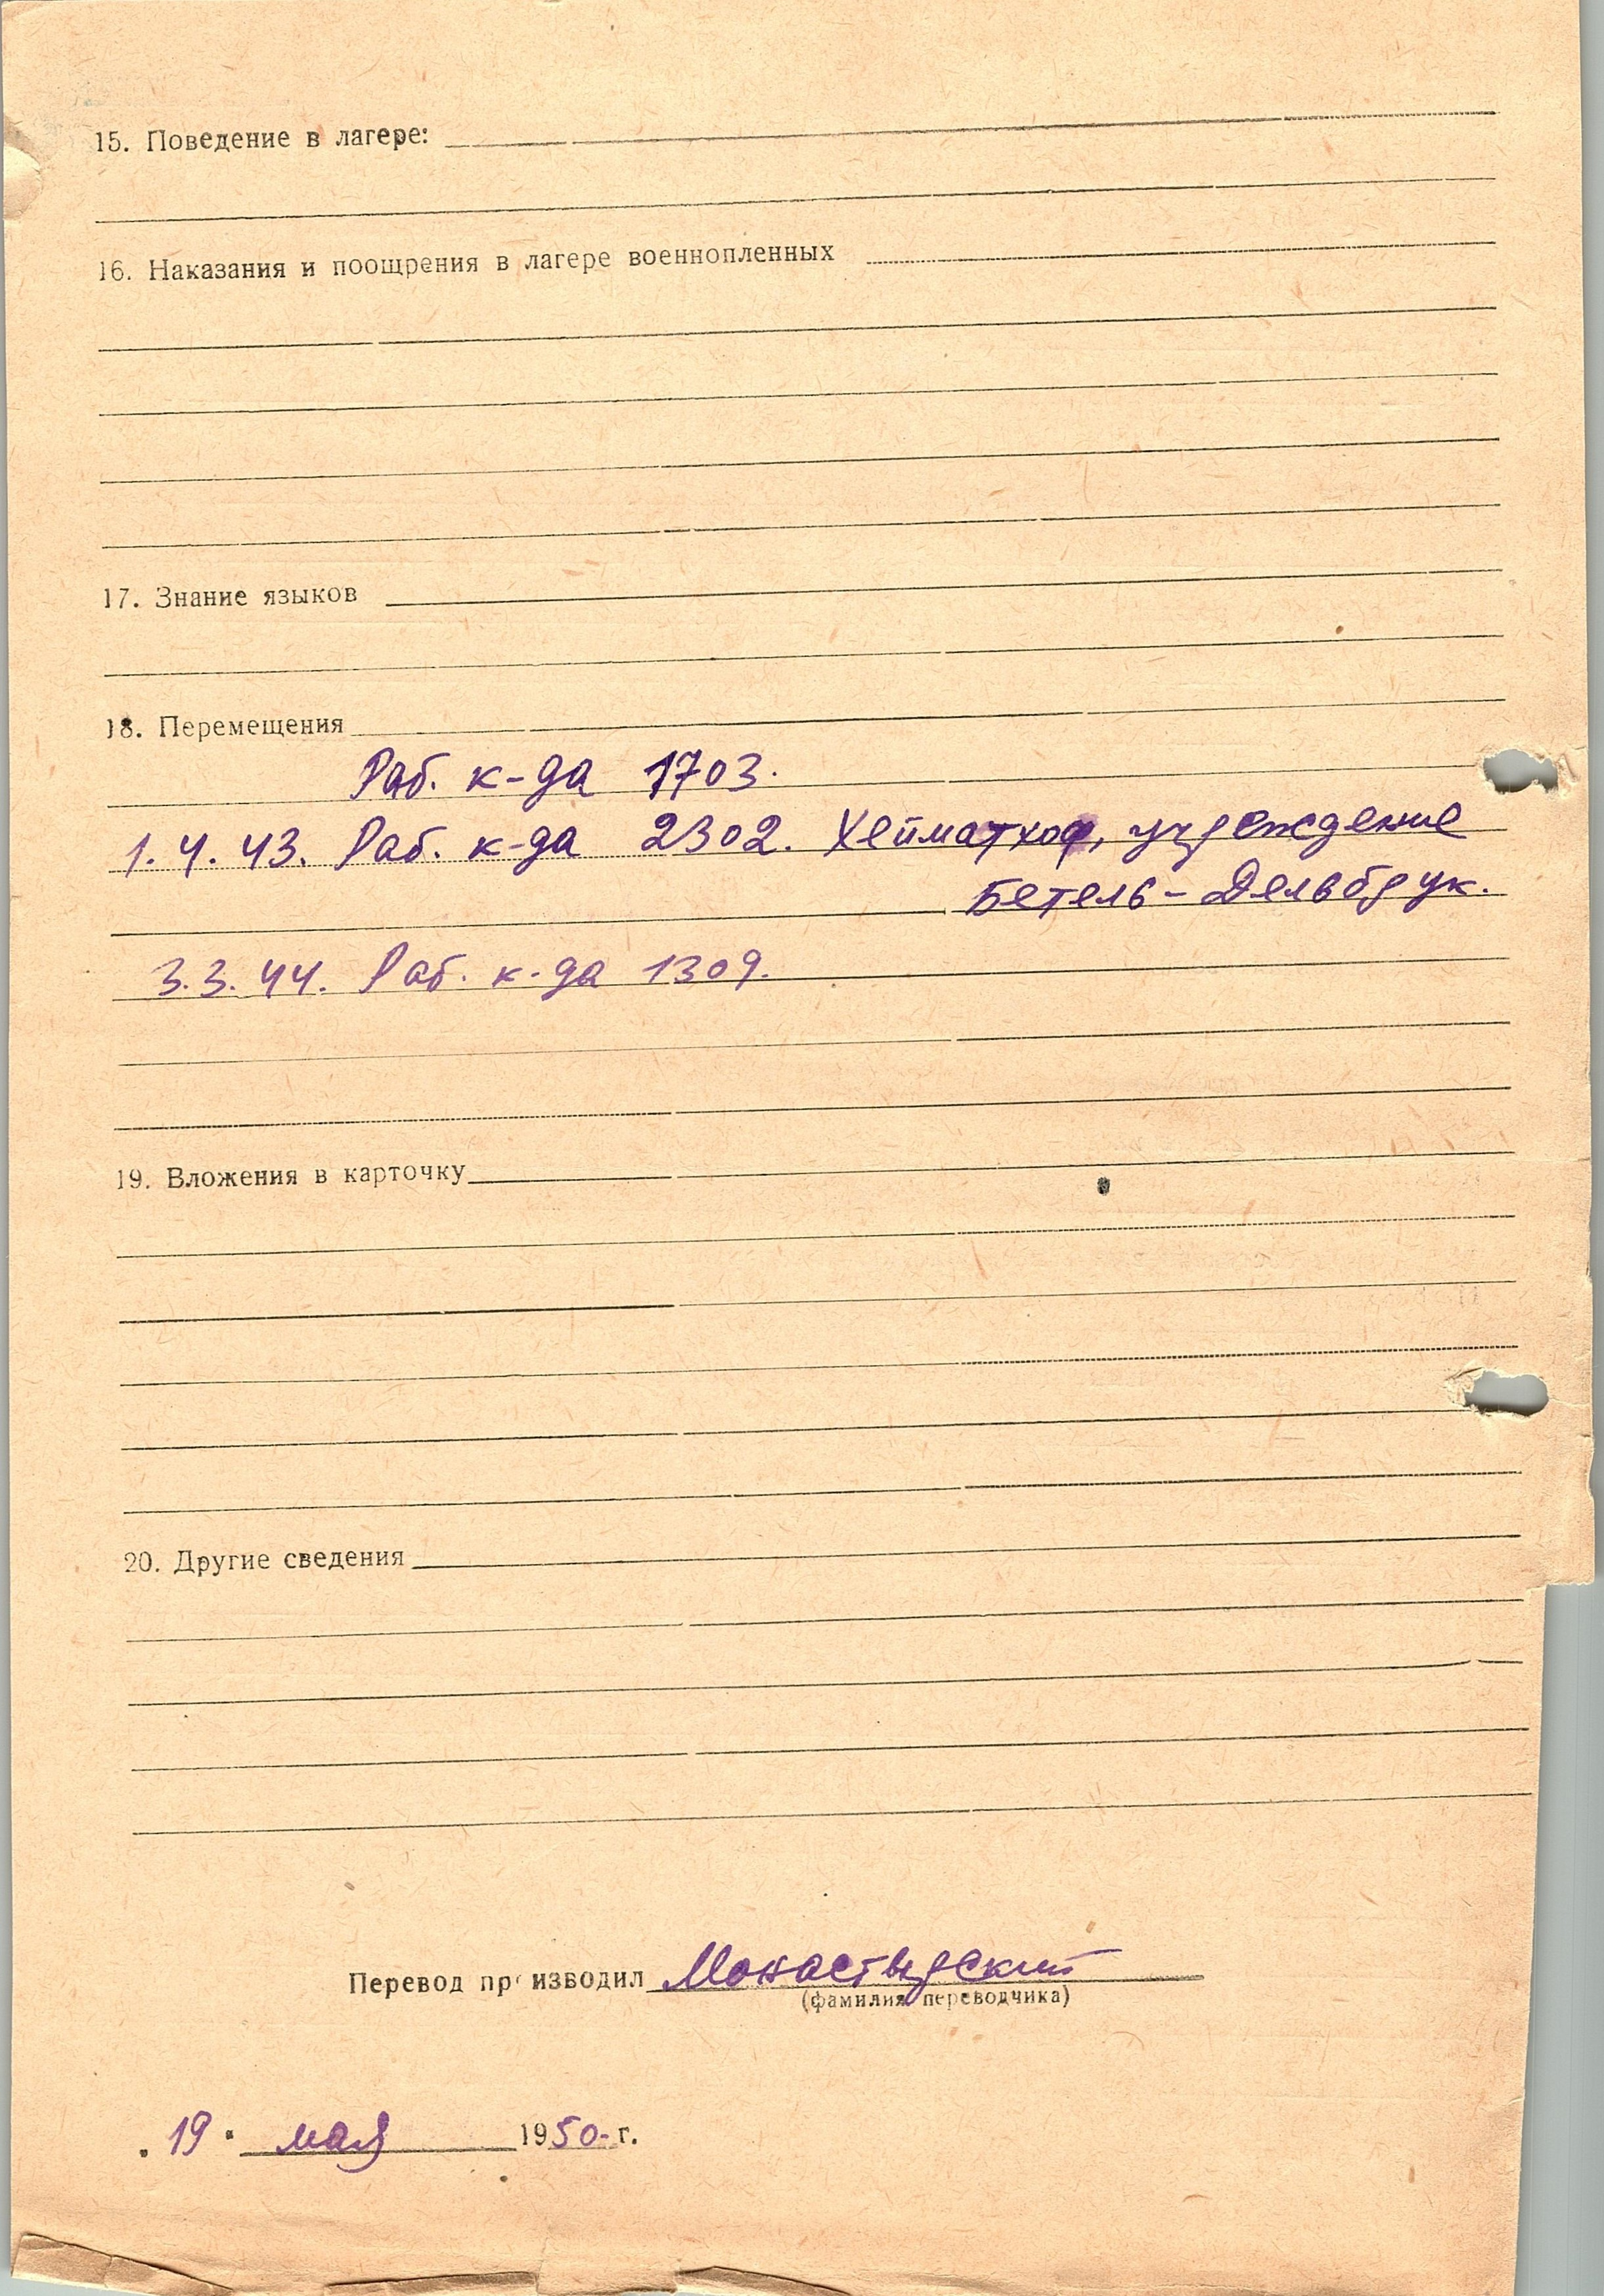 15. Поведение в лагере:
16. Наказания и поощрения в лагере военнопленных
17. Знание языков
18. Перемещения
Раб. к-да 1703.
1.4.43. Раб. к-да 2302. Хейматхоф, учреждение
Бетель - Дельбрук.
3.3.44. Раб. к-да 1309.
19. Вложения в карточку
20. Другие сведения
Перевод производил Монастырский
(фамилия переводчика)
„19" мая 1950 г.